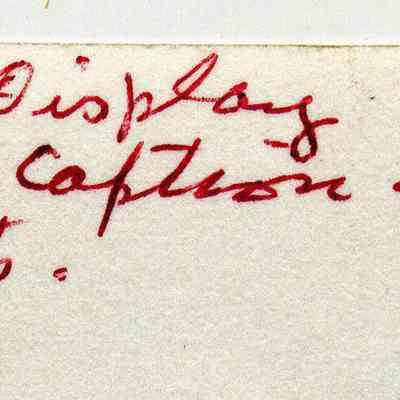 Display
Caption -